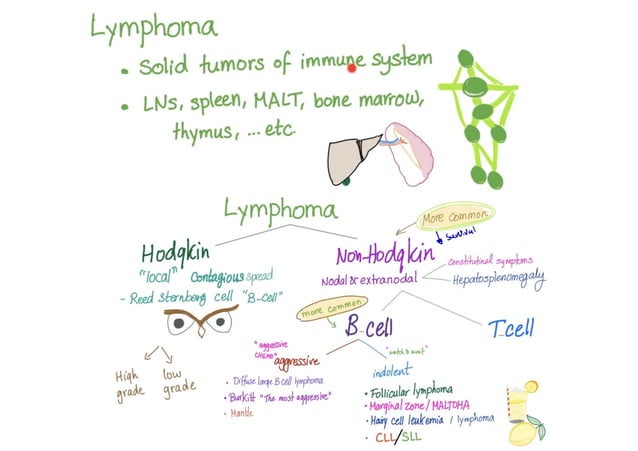 Lymphoma
• Solid tumors of immune system
• LNs, spleen, MALT, bone marrow,
thymus, ... etc.
Lymphoma
More Common
↓ Survival
Hodgkin
"local" Contagious spread
- Reed Sternberg cell "B-cell"
High grade
low grade
Non-Hodgkin
Nodal & extranodal
Constitutinal symptoms
Hepatosplenomegaly
more common
B-cell
T-cell
"aggressive CHEMO"
aggressive
• Diffuse large B cell lymphoma
• Burkitt "The most aggressive"
• Mantle
"watch & wait"
indolent
• Follicular lymphoma
• Marginal zone / MALTOMA
• Hairy cell leukemia / lymphoma
• CLL/SLL